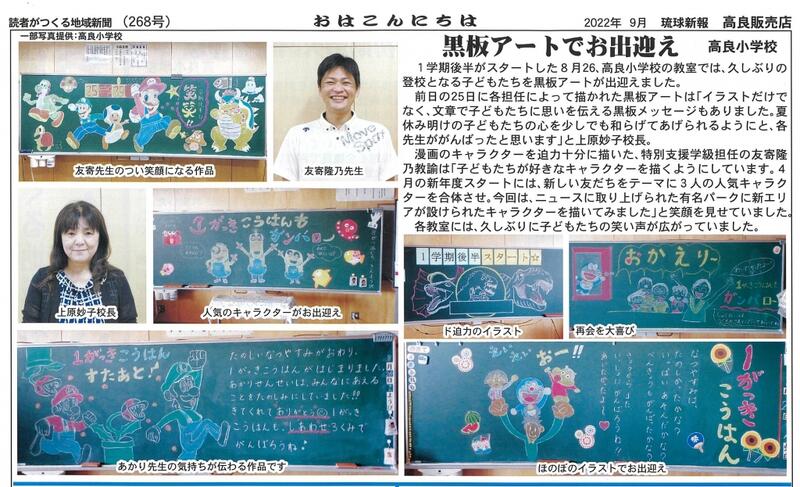 読者がつくる地域新聞 (268号)
おはこんにちは
2022年 9月 琉球新報 高良販売店
一部写真提供:高良小学校
黒板アートでお出迎え 高良小学校
1学期後半がスタートした8月26、高良小学校の教室では、久しぶりの
登校となる子どもたちを黒板アートが出迎えました。
前日の25日に各担任によって描かれた黒板アートは「イラストだけで
なく、文章で子どもたちに思いを伝える黒板メッセージもありました。夏
休み明けの子どもたちの心を少しでも和らげてあげられるようにと、各
先生ががんばったと思います」と上原妙子校長。
漫画のキャラクターを迫力十分に描いた、特別支援学級担任の友寄隆
乃教諭は「子どもたちが好きなキャラクターを描くようにしています。4
月の新年度スタートには、新しい友だちをテーマに3人の人気キャラク
ターを合体させ。今回は、ニュースに取り上げられた有名パークに新エリ
アが設けられたキャラクターを描いてみました」と笑顔を見せていました。
各教室には、久しぶりに子どもたちの笑い声が広がっていました。
笑笑!!
友寄先生のつい笑顔になる作品
Move
Sport
友寄隆乃先生
上原妙子校長
1がっきこうはんも
ガンバロー
人気のキャラクターがお出迎え
1学期後半スタート☆
ド迫力のイラスト
おかえり〜
1がっきこうはん
ガンバロー
再会を大喜び
1がっきこうはん
すたあと!
たのしいなつやすみがおわり、
1がっきこうはんがはじまりました。
あかりせんせいは、みんなにあえる
ことをたのしみにしていました!!
きてくれてありがとう
1がっき
こうはんも、しあわせ3くみで
がんばろうね!
あかり先生の気持ちが伝わる作品です
おー!!
1がっき
こうはん
なつやすみは、
たのしかったかな?
いっぱいあそんだかな?
ほのぼのイラストでお出迎え